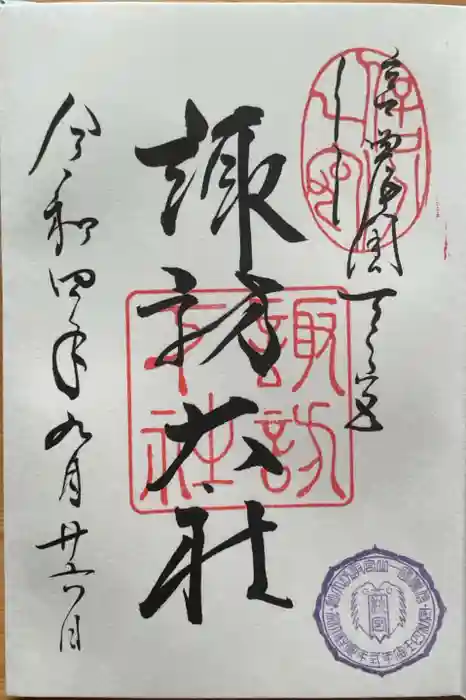 信濃國一之宮
諏訪大社
諏訪大社
令和四年九月廿六日